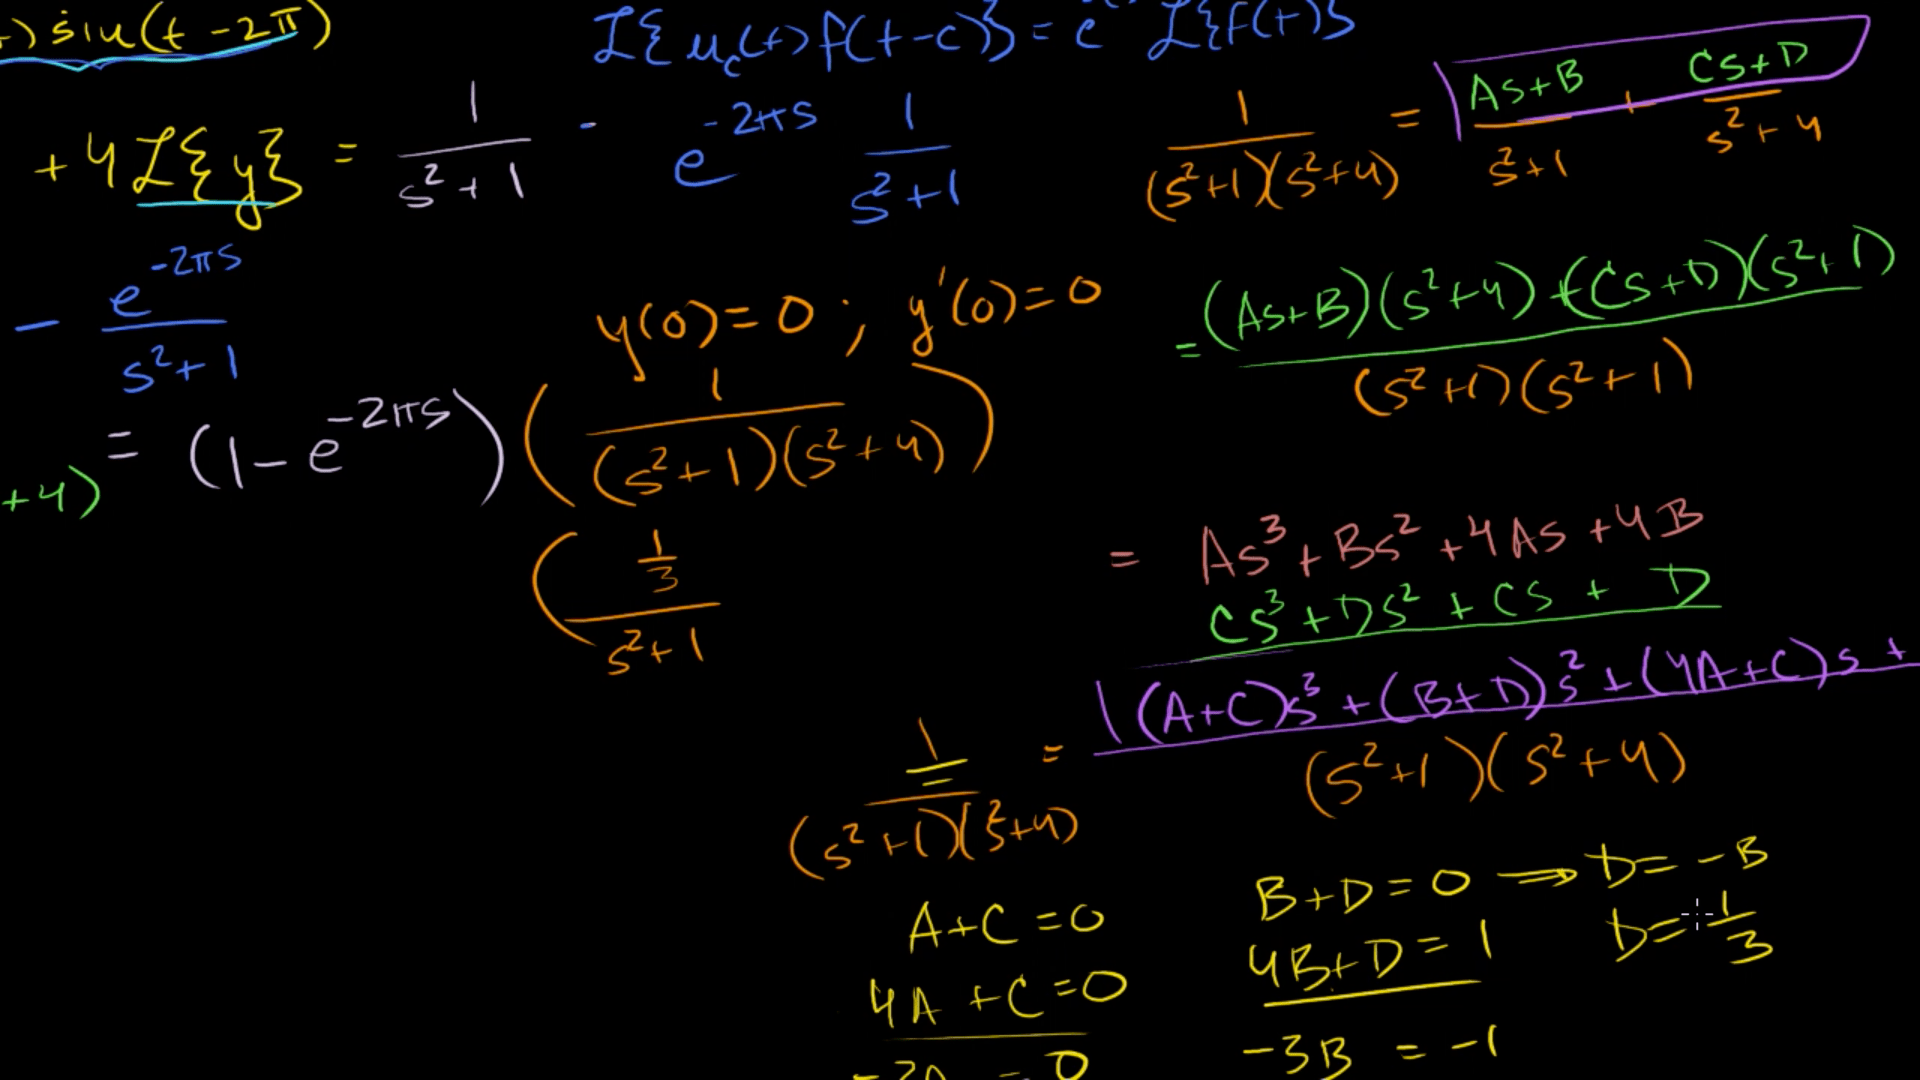 ) sin(t - 2π)
ℒ{u_c(t) f(t-c)} = e ℒ{f(t)}
+ 4ℒ{y} = 1/(s² + 1) - e^(-2πs) 1/(s² + 1)
1/((s²+1)(s²+4)) = (As+B)/(s²+1) + (Cs+D)/(s²+4)
- e^(-2πs)/(s² + 1)
y(0) = 0 ; y'(0) = 0
= ((As+B)(s²+4) + (Cs+D)(s²+1))/((s²+1)(s²+1))
+4) = (1 - e^(-2πs)) (1/((s²+1)(s²+4)))
( (1/3)/(s²+1)
= As³ + Bs² + 4As + 4B
Cs³ + Ds² + Cs + D
1/((s²+1)(s²+4)) = (A+C)s³ + (B+D)s² + (4A+C)s + /((s²+1)(s²+4))
A+C = 0
4A + C = 0
B+D = 0 → D = -B
4B+D = 1
D = -1/3
-3B = -1
= 0